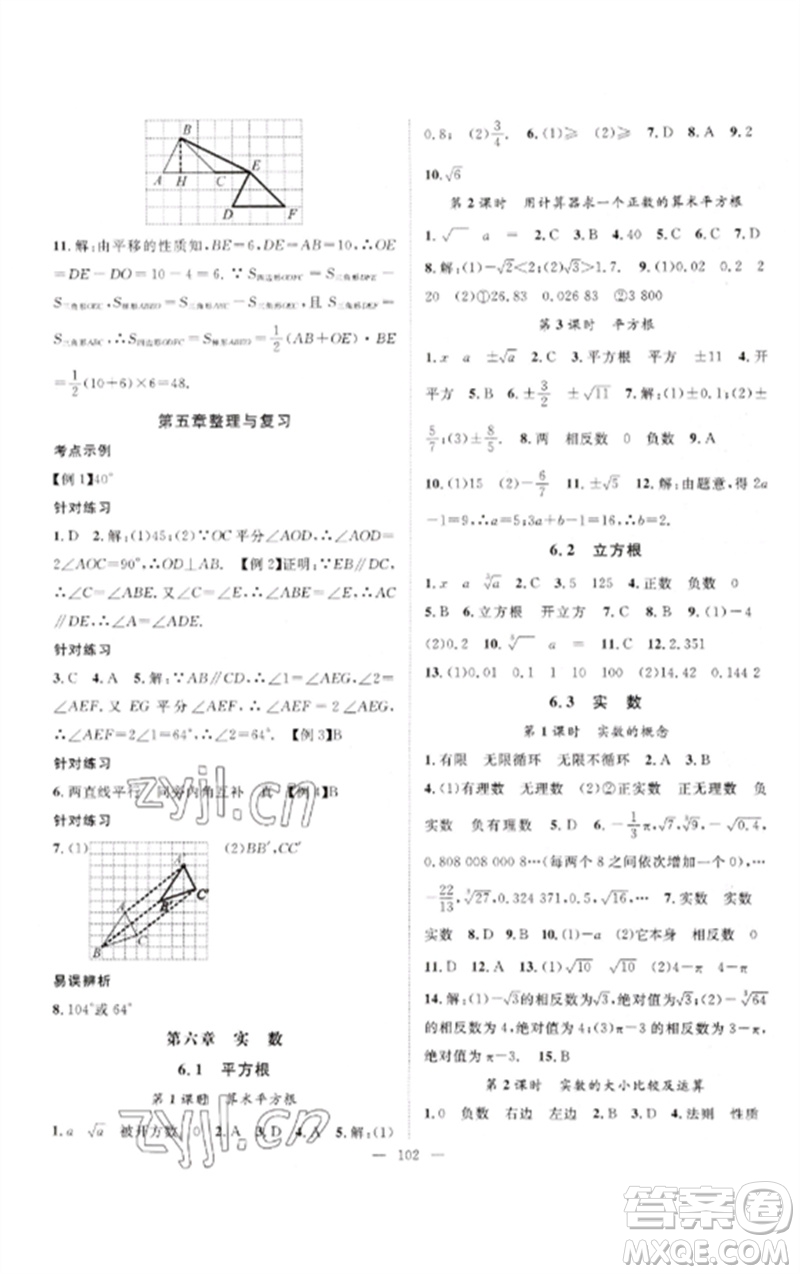 B
A H C E
D F
11.解:由平移的性质知,BE=6,DE=AB=10,∴OE
=DE-DO=10-4=6.∵S四边形ODFC=S三角形DFE-
S三角形OEC,S梯形ABEO=S三角形ABC-S三角形OEC,且 S三角形DEF=
S三角形ABC,∴S四边形ODFC=S梯形ABEO=1/2(AB+OE)·BE
=1/2(10+6)×6=48.
第五章整理与复习
考点示例
【例1】40°
针对练习
1.D 2.解:(1)45;(2)∵OC平分∠AOD,∴∠AOD=
2∠AOC=90°,∴OD⊥AB. 【例2】证明:∵EB∥DC,
∴∠C=∠ABE.又∵∠C=∠E,∴∠E=∠ABE.∴AC
∥DE.∴∠A=∠ADE.
针对练习
3.C 4.A 5.解:∵AB∥CD,∴∠1=∠AEG,∠2=
∠AEF.又 EG 平分∠AEF,∴∠1=∠AEG=
∠AEF.∴∠1=∠2=64°,∴∠2=64°. 【例3】B
针对练习
6.两直线平行 同旁内角互补 真 【例4】B
针对练习
7.(1) (2)BB′,CC′
A′
B′ C′
A
B C
易误辨析
8.104°或64°
第六章 实 数
6.1 平方根
第1课时 算术平方根
1.a √a 被开方数 0 2.A 3.D 4.A 5.解:(1)
0.8;(2)3/4. 6.(1)≥ (2)≥ 7.D 8.A 9.2
10.√6
第2课时 用计算器求一个正数的算术平方根
1.√ a = 2.C 3.B 4.40 5.C 6.C 7.D
8.解:(1)-√2<2;(2)√3>1.7. 9.(1)0.02 0.2 2
20 (2)①26.83 0.026 83 ②3 800
第3课时 平方根
1.x a ±√a 2.C 3.平方根 平方 ±11 4.开
平方 5.B 6.±3/2 ±√11 7.解:(1)±0.1;(2)±
5/7;(3)±8/5. 8.两 相反数 0 负数 9.A
10.(1)15 (2)-6/7 11.±√5 12.解:由题意,得2a
-1=9;∴a=5;3a+b-1=16,∴b=2.
6.2 立方根
1.x a ∛a 2.C 3.5 125 4.正数 负数 0
5.B 6.立方根 开立方 7.B 8.C 9.(1)-4
(2)0.2 10.∛ a = 11.C 12.2.351
13.(1)0.01 0.1 1 10 100 (2)14.42 0.144 2
6.3 实 数
第1课时 实数的概念
1.有限 无限循环 无限不循环 2.A 3.B
4.(1)有理数 无理数 (2)正实数 负实数 5.
实数 负有理数 6.-1/3π,√7,∛9,-√0.4,
0.808 008 000 8…(每两个 8 之间依次增加一个 0),…
-22/13,∛27,0.324 371,0.5,√16,… 7.实数 实数
实数 8.D 9.C 10.(1)-a (2)它本身 相反数 0
11.D 12.A 13.(1)√10 √10 (2)4-π 4-π
14.解:(1)-√3的相反数为√3,绝对值为√3;(2)-∛64
的相反数为4,绝对值为4;(3)π-3的相反数为3-π,
绝对值为π-3. 15.B
第2课时 实数的大小比较及运算
1.0 负数 右边 左边 2.D 3.A 4.法则 性质
102
zyjl.cn
zyjl.cn
答案卷
MXQE.COM